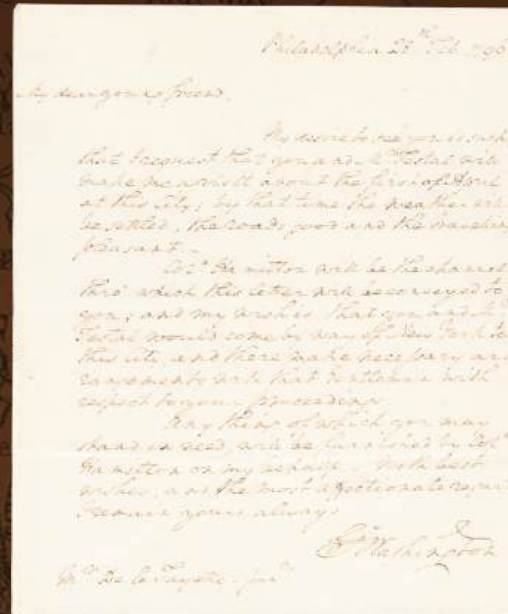 Philadelphia 28th Feb. 1796
My dear young friend,
My desire to see you is such
that I request that you and Mr. Festal will
make me a visit about the first of April
at this City; by that time the weather will
be settled, the roads good and the traveling
pleasant.
Colo. Hamilton will be the channel
thro' which this letter will be conveyed to
you; and my wish is, that you and Mr.
Festal would come by way of New York to
this city and there make necessary ar-
rangements with that Gentleman with
respect to your proceedings.
Any thing of which you may
stand in need, will be furnished by Colo.
Hamilton on my behalf. With best
wishes, and the most affectionate regard
I remain yours always
Go. Washington
Mr. De la Fayette. junr.